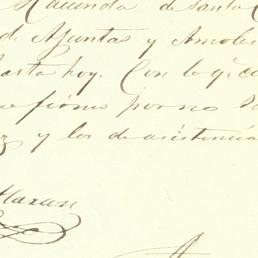 Hacienda de Santa
de Ajuntas y Amoles
hasta hoy. Con lo q.e
que firmó por no
y los de asistencia